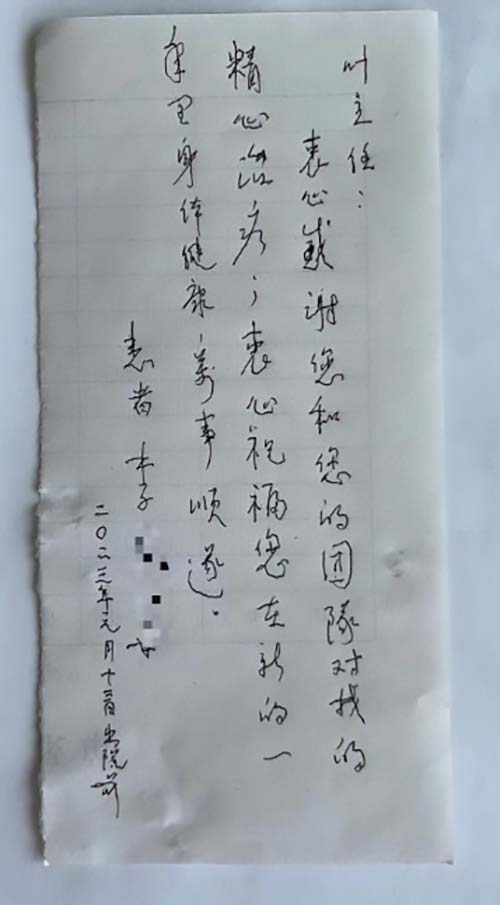 叶主任：
衷心感谢您和您的团队对我的
精心治疗；衷心祝福您在新的一
年里身体健康，万事顺遂。
患者 李
二〇二三年元月十三日出院前